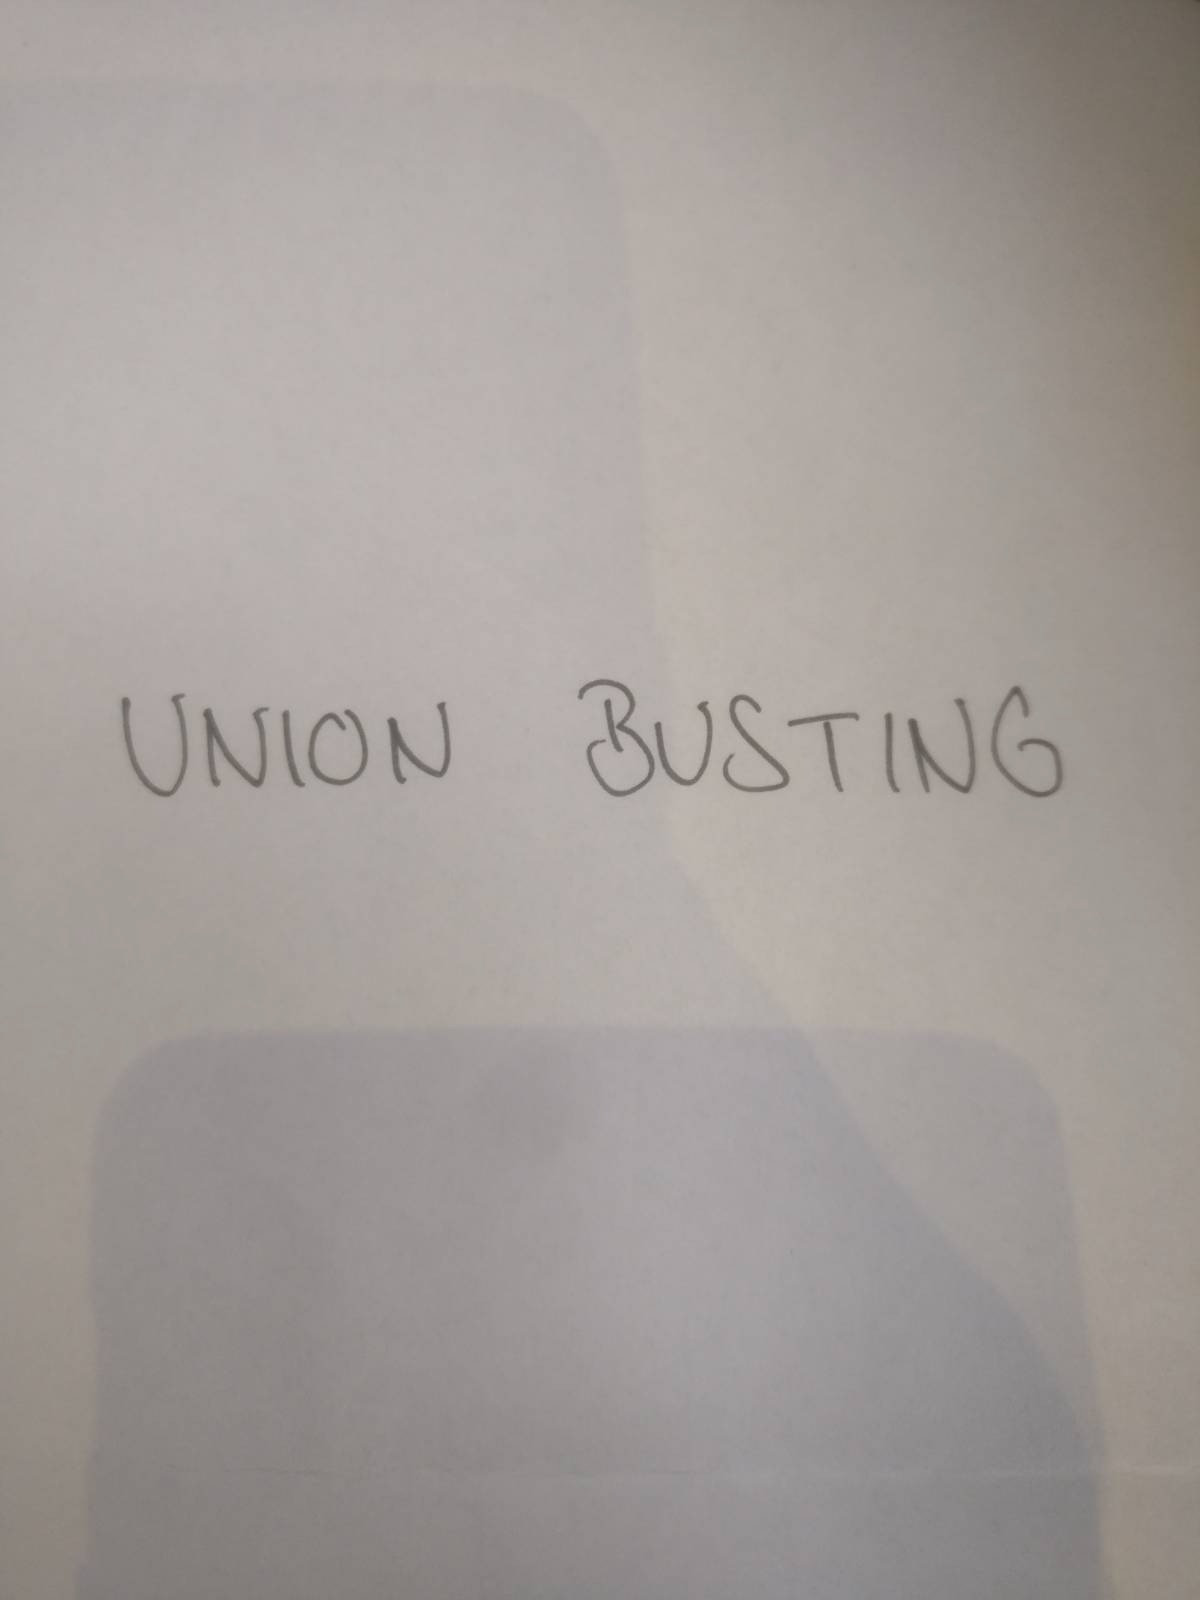 UNION BUSTING